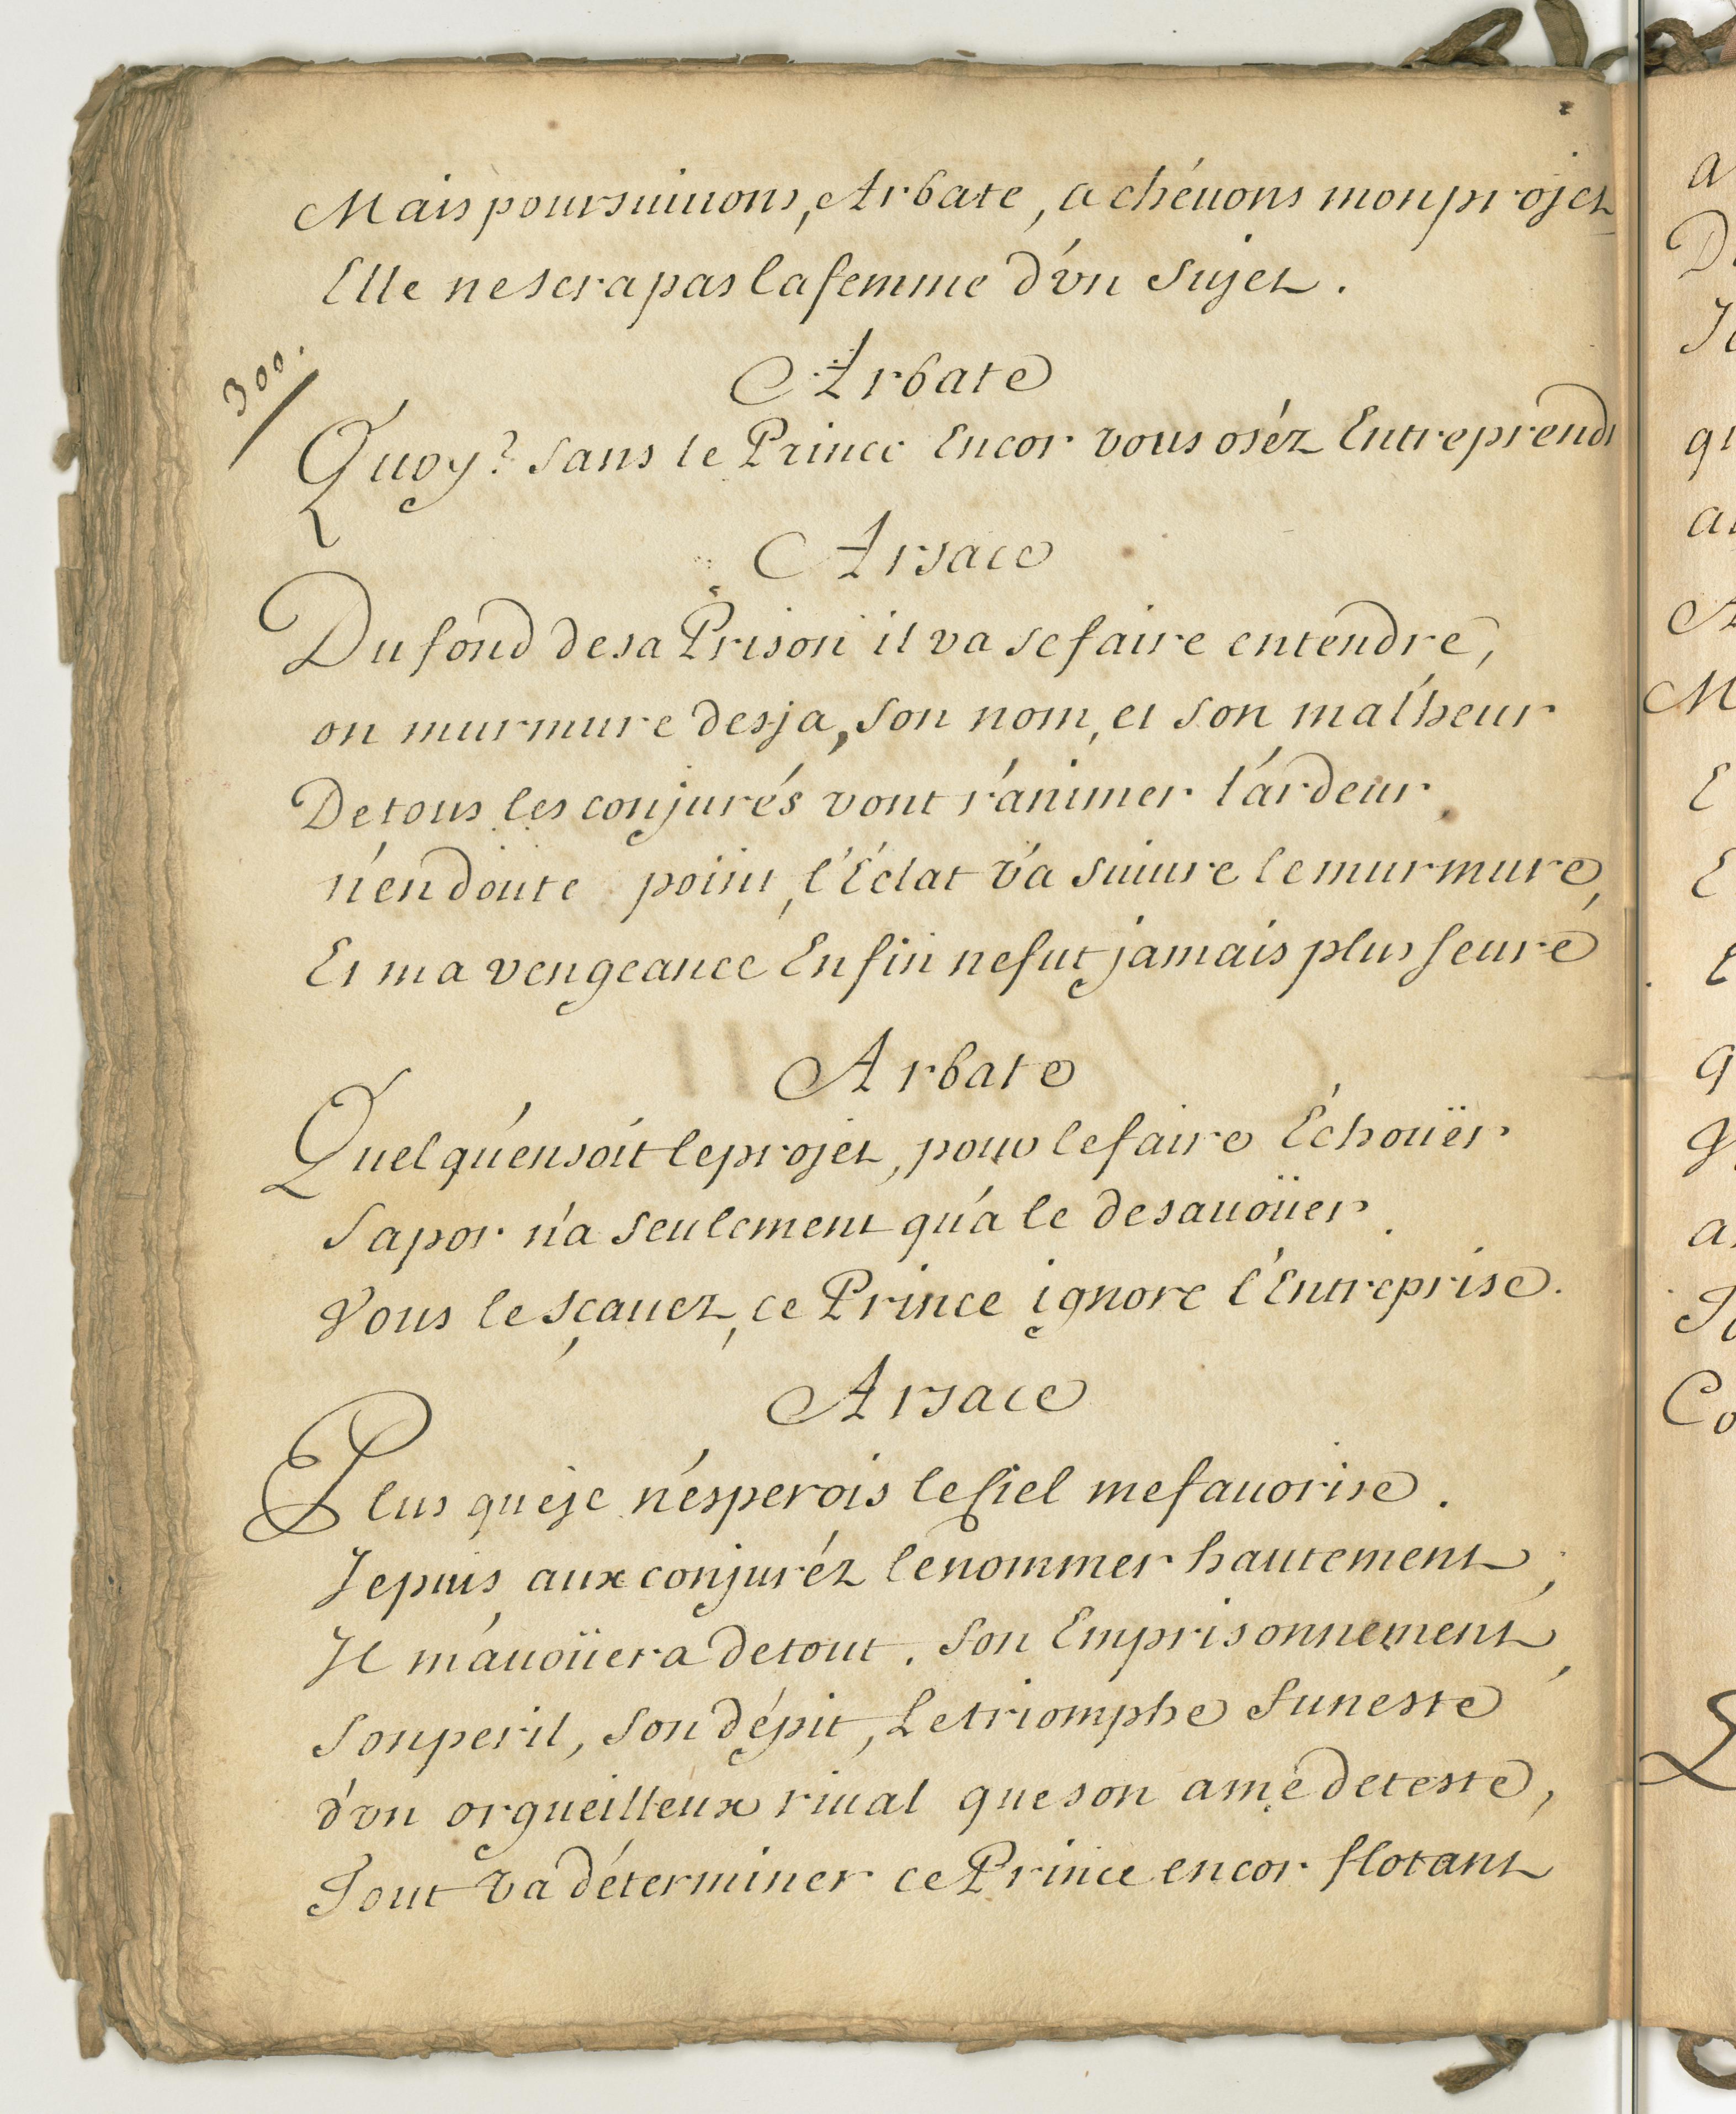 Mais poursuiuons, Arbate, acheuons mon projet
Elle ne sera pas la femme d'vn Sujet.
Arbate
300.
Quoy? sans le Prince Encor vous oséz Entreprendr
Arsace
Du fond de sa Prison il va se faire entendre,
on murmure desja, son nom, et son malheur
De tous les conjurés vont r'animer l'ardeur.
n'en doute point, l'Éclat va suiure le murmure,
Et ma vengeance Enfin ne fut jamais plus seure
Arbate
Quel qu'en soit le projet, pour le faire Échoüer
Sapor n'a seulement qu'a le desauoüer.
Vous le sçauez, ce Prince ignore l'Entreprise.
Arsace
Plus que je n'esperois le Ciel me fauorise.
Je puis aux conjuréz le nommer hautement,
Il m'auoüera de tout. Son Emprisonnement,
Son peril, son dépit, Le triomphe funeste
d'vn orgueilleux riual que son ame deteste,
Tout va déterminer ce Prince encor flotant